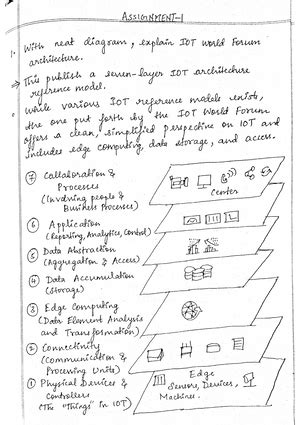 ASSIGNMENT-1
1. With neat diagram, explain IOT World Forum
architecture.
⇒ This publish a seven-layer IOT architecture
reference model.
While various IOT reference models exists,
the one put forth by the IOT World Forum
offers a clean, simplified perspective on IOT and
includes edge computing, data storage, and access.
⑦ Collaboration &
Processes
(Involving people &
Business Processes)
Center
⑥ Application
(Reporting, Analytics, Control)
⑤ Data Abstraction
(Aggregation & Access)
④ Data Accumulation
(Storage)
③ Edge Computing
(Data Element Analysis
and Transformation)
② Connectivity
(Communication &
Processing Units)
① Physical Devices &
Controllers
(The "Things" in IOT)
Edge
Sensors, Devices,
Machines.